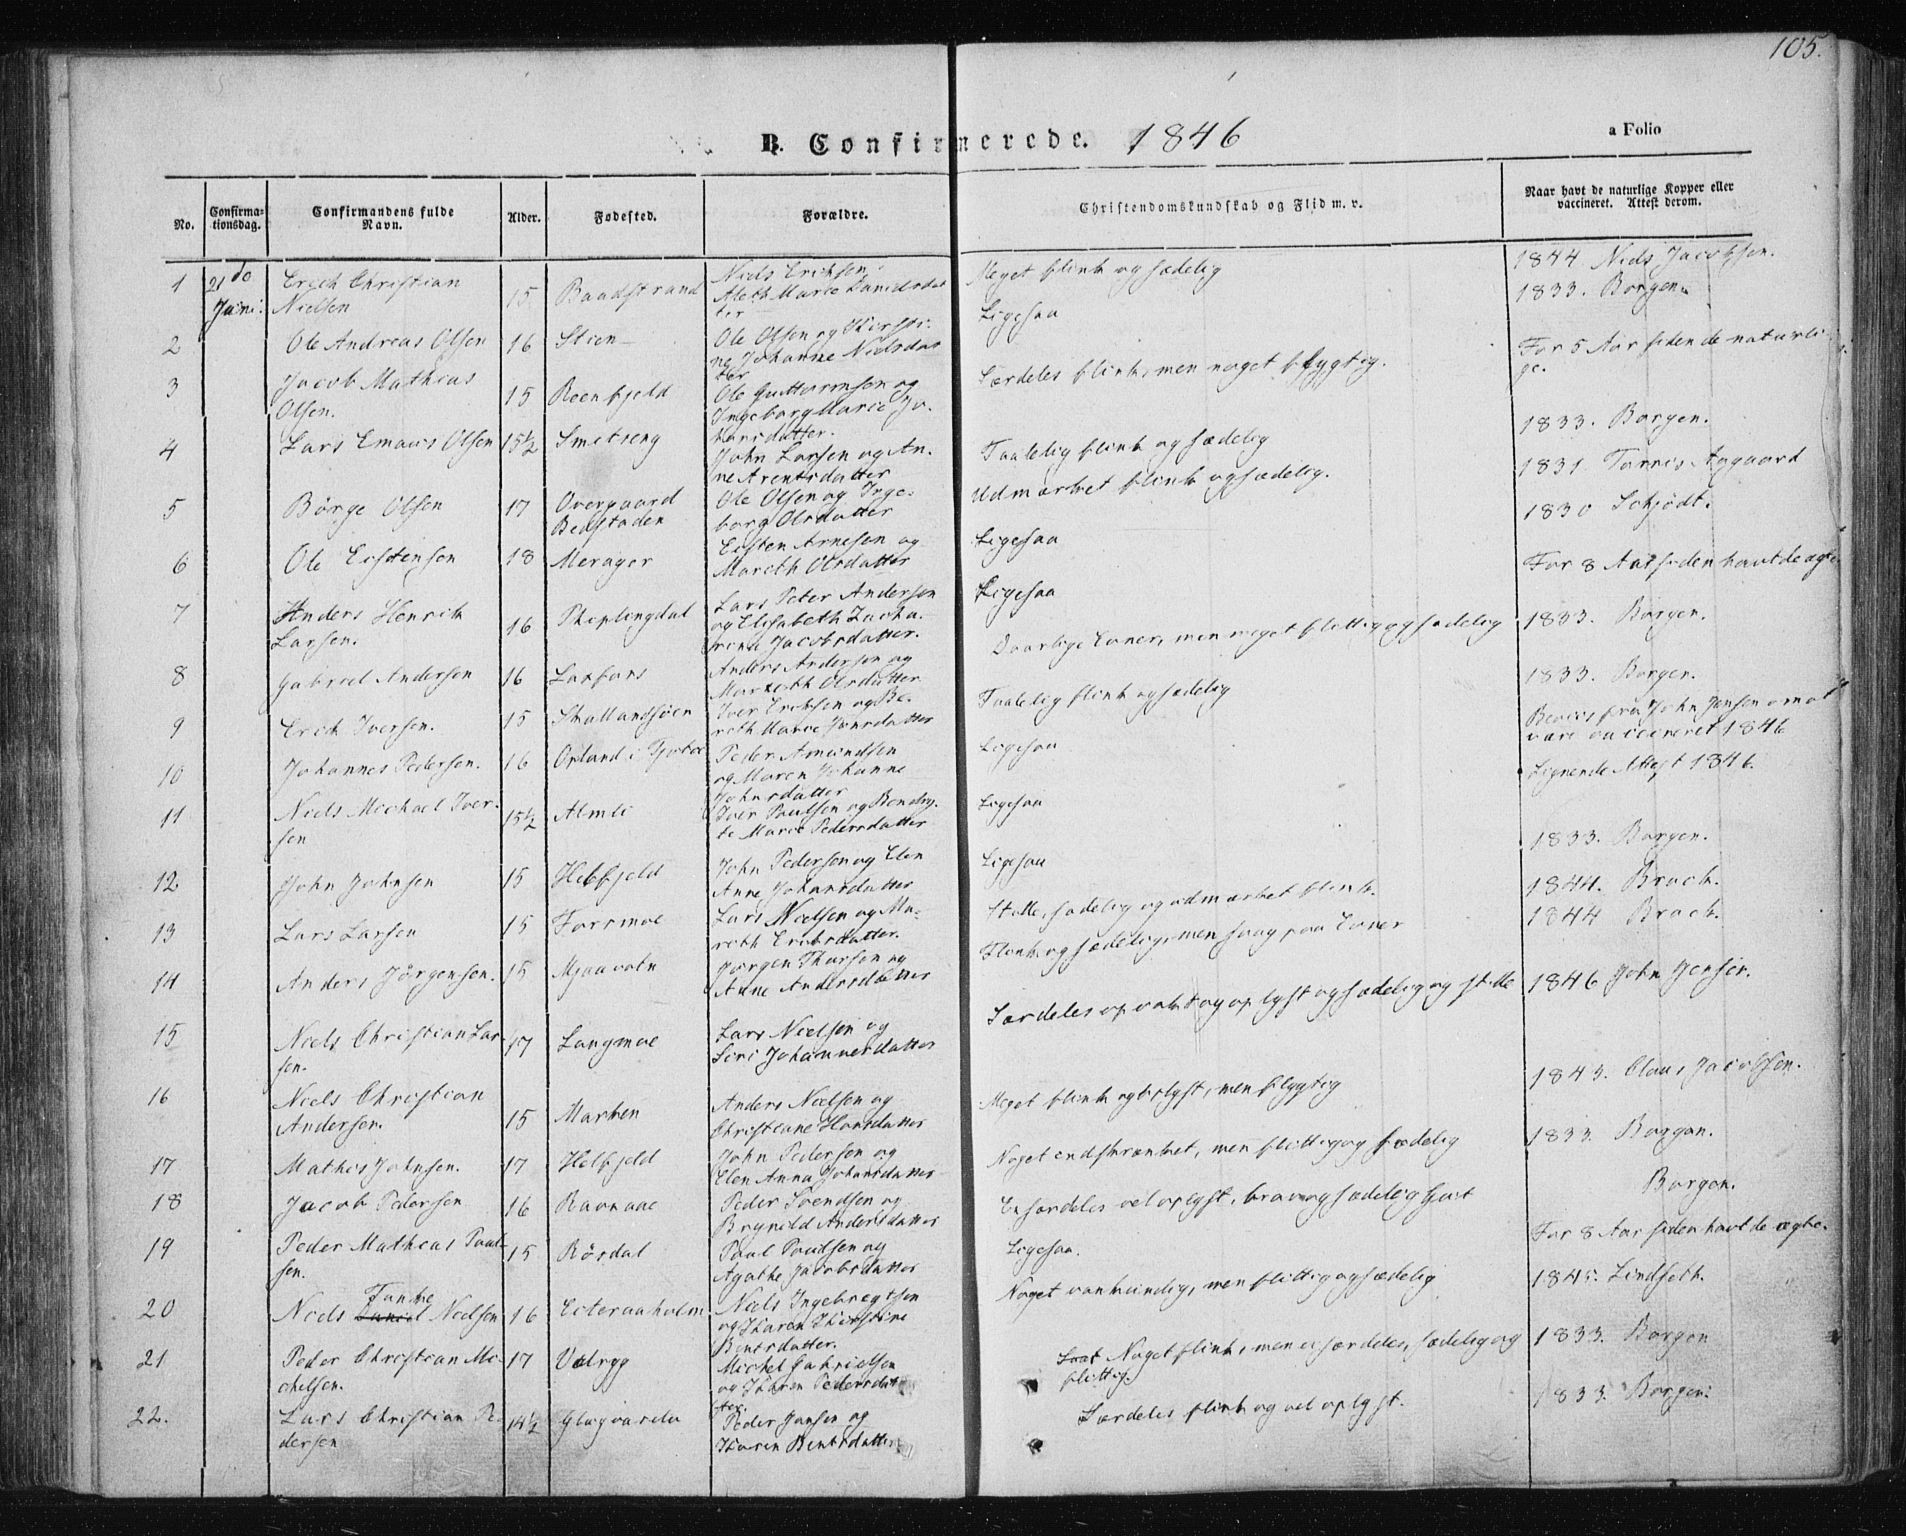 105.
B. Confirmerede. 1846
a Folio
No.
Confirma-
tionsdag.
Confirmandens fulde
Navn.
Alder.
Fødested.
Forældre.
Christendomskundskab og Flid m. v.
Naar havt de naturlige Kopper eller
vaccineret. Attest derom.
1 21de Erich Christian 15 Baadstrand Niels Erichsen Meget flink og sædelig 1844 Niels Jacobsen.
Juni: Nielsen Aleth Marie Danielsdat
ter
2 Ole Andreas Olsen 16 Stien Ole Olsen og Kirsti- Ligesaa 1833. Borgen.
ne Johanne Nielsdat
ter
3 Jacob Mathias 15 Reenfjeld Ole Guttormsen og Særdeles flink, men noget flygtig. For 5 Aar siden de naturli
Olsen. Ingeborg Marie Jo- ge.
hansdatter.
4 Lars Emaus Olsen 15½ Smitseng John Larsen og An- Taalelig flink og sædelig 1833. Borgen.
ne Arentsdatter
5 Børge Olsen 17 Overgaard Ole Olsen og Inge- Udmærket flink og sædelig. 1831 Tørris Aagaard
Beastaden borg Olsdatter
6 Ole Eistensen 18 Merager Eisten Arnesen og Ligesaa 1830 Schjødt.
Mareth Olsdatter
7 Anders Henrik 16 Lars Peter Andersen Ligesaa For 8 Aar siden havt de ægte
Larsen. og Elisabeth Zacha-
rina Jacobsdatter.
8 Gabriel Andersen 16 Laxfors Anders Andersen og Daarlige Evner, men meget flittig og sædelig 1833. Borgen.
Mareth Olsdatter
9 Erich Iversen. 15 Iver Erichsen og Be- Taalelig flink og sædelig 1833. Borgen.
reth Marie Jensdatter
10 Johannes Pedersen. 16 Peder Amundsen Ligesaa Beviis fra John Jensen om at
og Maren Johanne være vaccineret 1846
Johnsdatter
11 Niels Michael Iver- 15½ Almli Iver Paulsen og Bendig- Ligesaa Lignende Attest 1846.
sen te Marie Pedersdatter
12 John Johnsen 15 Helfjeld John Pedersen og Elen Ligesaa 1833. Borgen.
Anne Johansdatter
13 Lars Larsen 15 Forsmoe Lars Nielsen og Ma- Stille, sædelig og udmærket flink. 1844. Brock.
reth Erichsdatter.
14 Anders Jørgensen. 15 Mjaavatn Jørgen Thorsen og Flink og sædelig, men svag paa Evner 1844 Brock.
Anne Andersdatter
15 Niels Christian Lar- 17 Langmoe Lars Nielsen og Særdeles opvakt og oplyst og sædelig og stille 1846 John Jensen.
sen. Siri Johannesdatter
16 Niels Christian 15 Marken Anders Nielsen og Meget flink og oplyst, men flygtig 1843. Claus Jacobsen.
Andersen. Christiane Hansdatter
17 Mathis Johnsen. 17 Helfjeld John Pedersen og Noget indskrænket, men flittig og sædelig 1833. Borgen.
Elen Anna Johansdatter
18 Jacob Pedersen 16 Ravnaae Peder Svendsen og En særdeles vel oplyst, brav og sædelig Gut Borgen.
Brynild Andersdatter
19 Peder Mathias Paul- 15 Røsdal Paul Paulsen og Ligesaa. For 8 Aar siden havt de ægte.
sen. Agathe Jacobsdatter
20 Niels Fanche Nielsen 16 Eiteraaholm Niels Ingebregtsen Noget vankundig, men flittig og sædelig 1845. Lindseth.
og Karen Kirstine
Bentsdatter.
21 Peder Christian Mi- 17 Valrygg Michel Gabrielsen Noget flink, men ei særdeles, sædelig og 1833. Borgen
chelsen. og Karen Pedersdat flittig.
ter.
22. Lars Christian Pe- 14½ Peder Jansen og Særdeles flink og vel oplyst. 1833. Borgen.
dersen Karen Bentsdatter